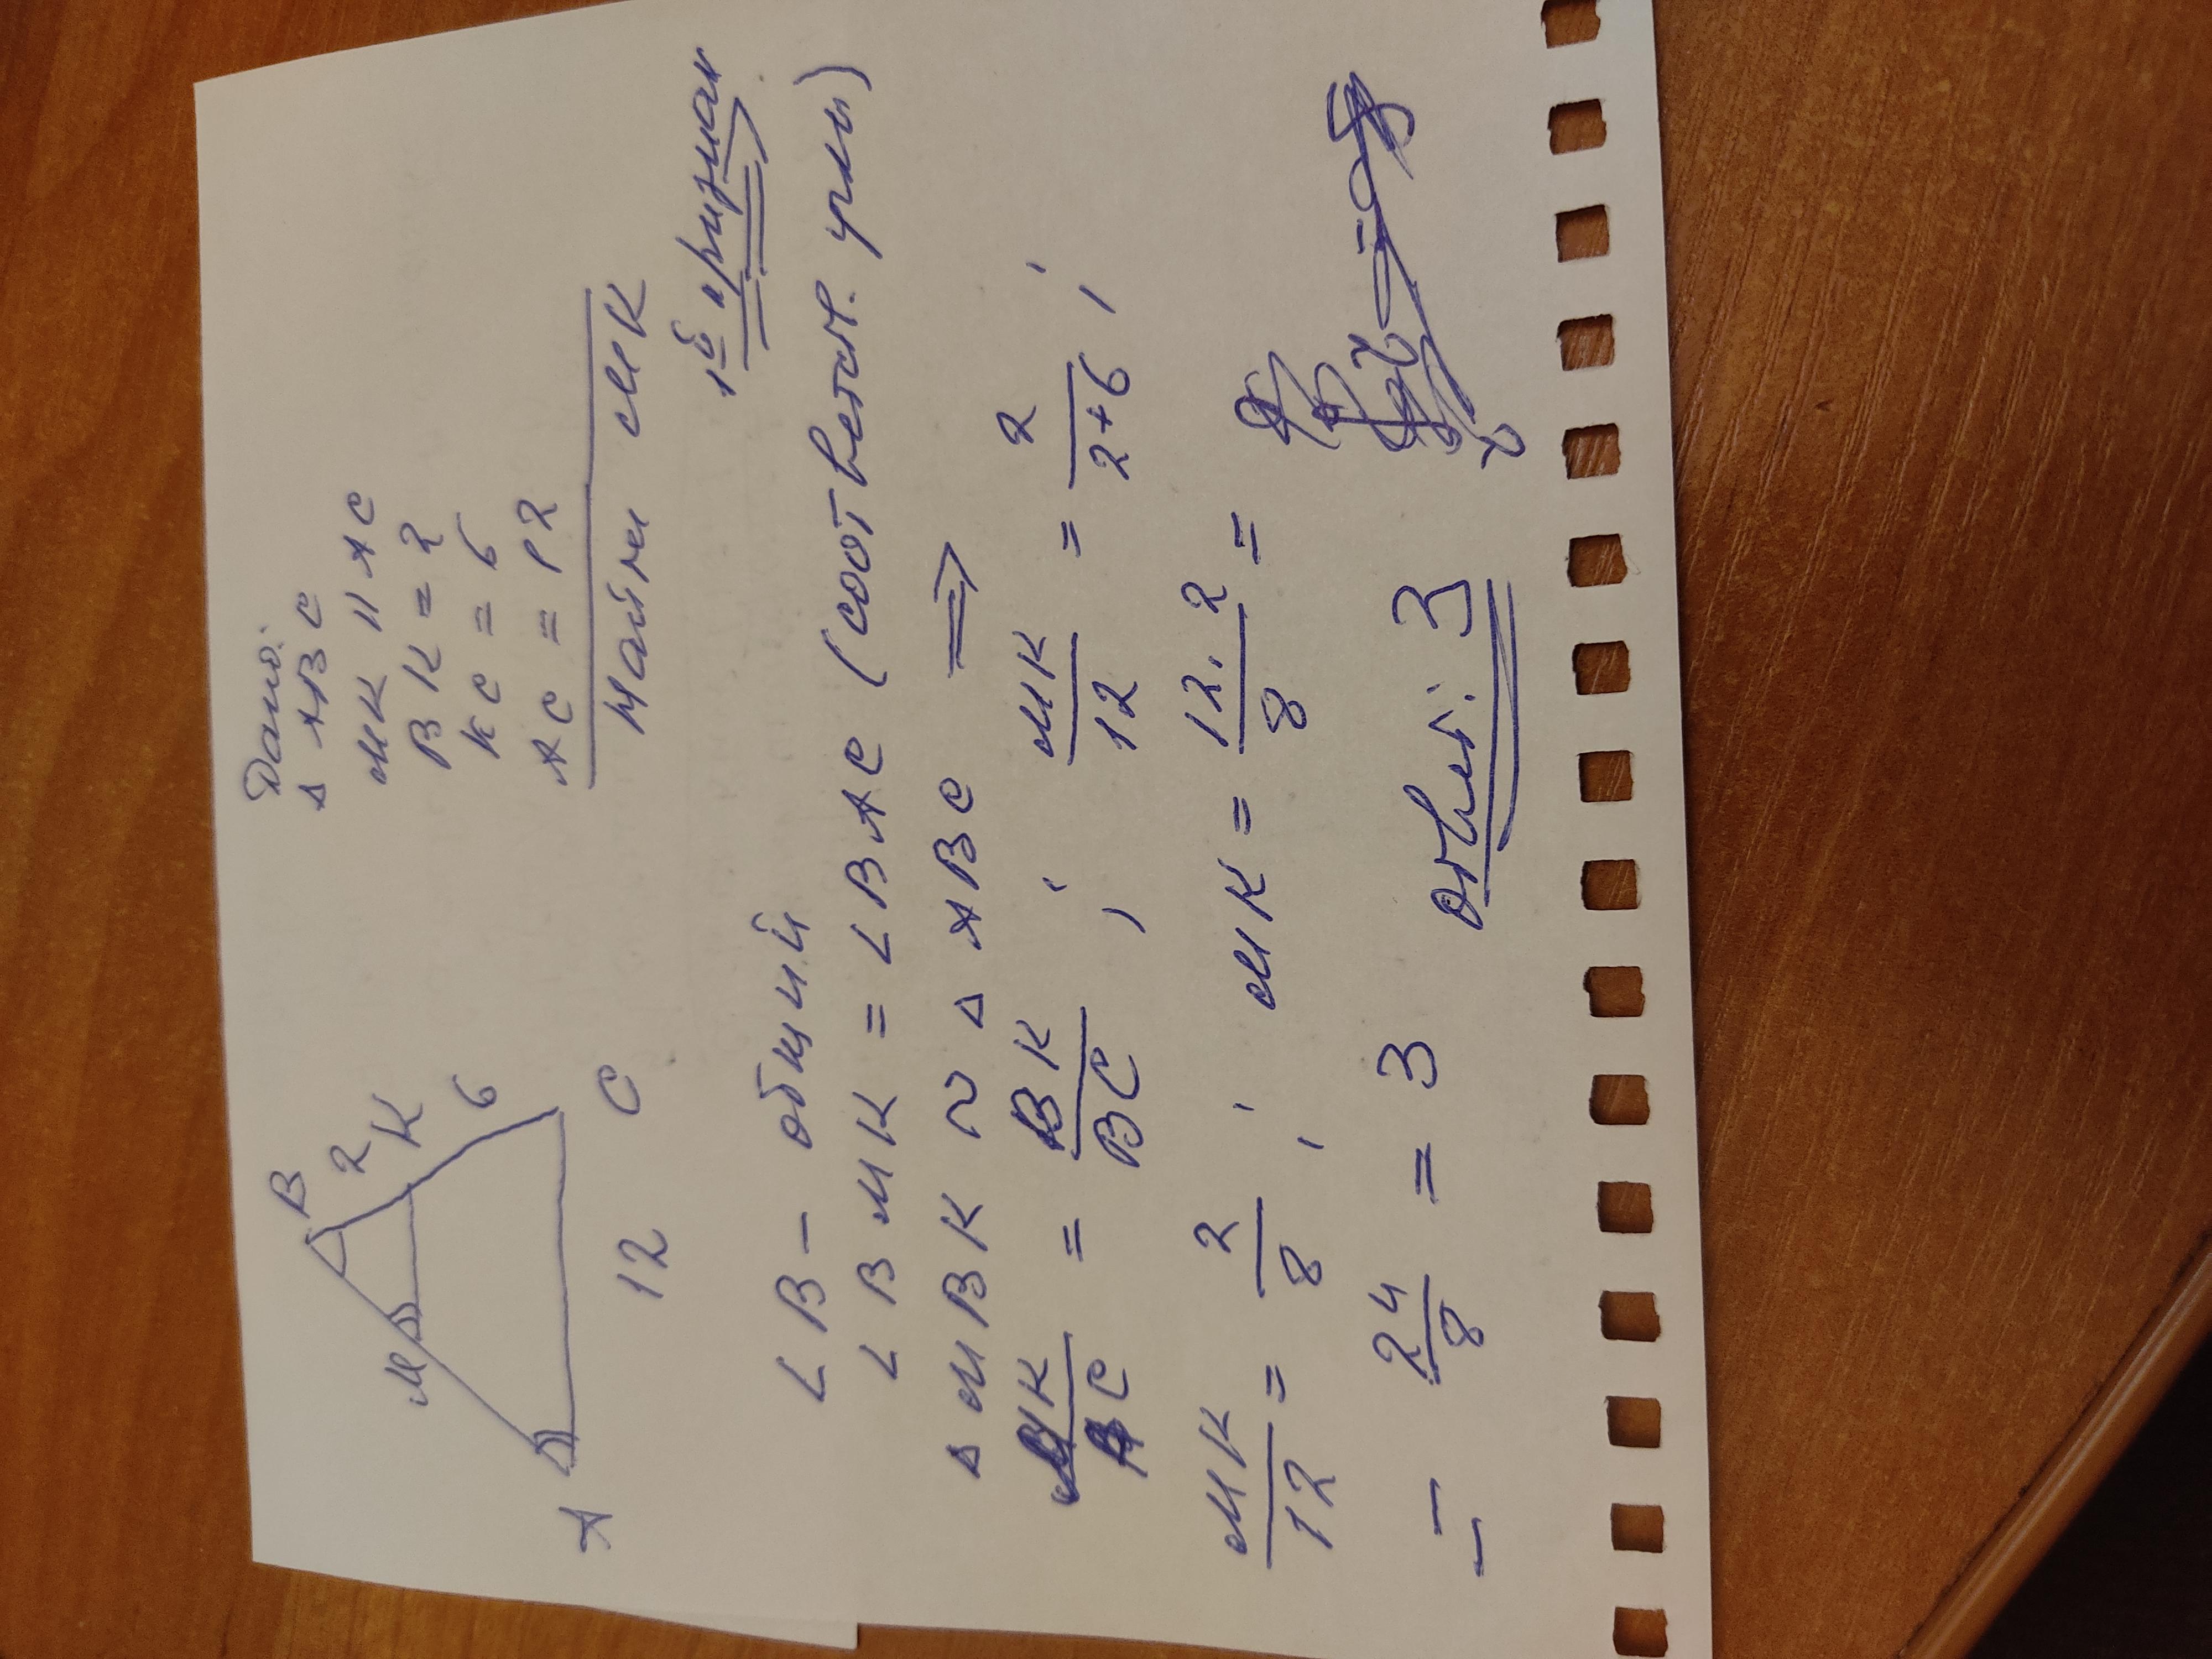 Дано:
△ ABC
MK || AC
BK = 2
KC = 6
AC = 12
Найти MK
B
2
K
M
6
A
12
C
1й признак
∠B – общий
∠BMK = ∠BAC (соответств. углы)
△MBK ~ △ABC ⟹
MK/AC = BK/BC ; MK/12 = 2/(2+6) ;
MK/12 = 2/8 ; MK = 12·2/8 =
= 24/8 = 3
Ответ: 3